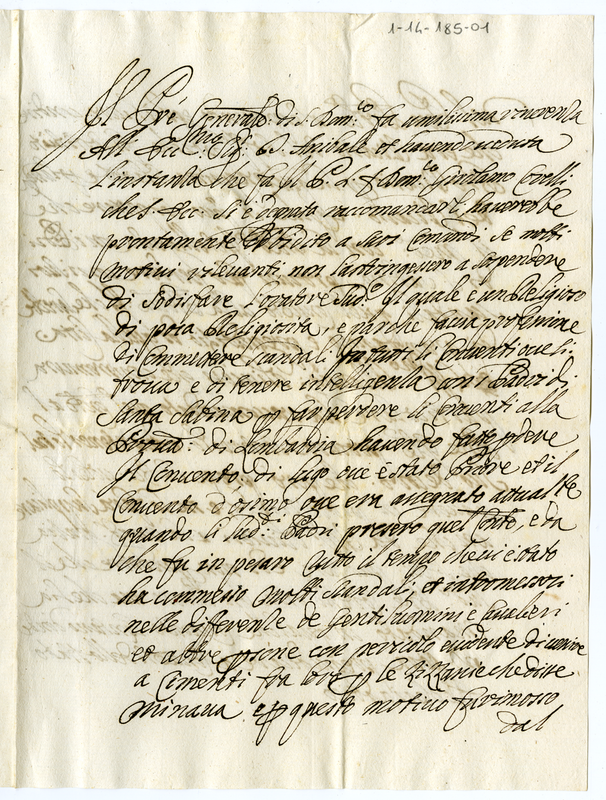 1-14-185-01
Il Pre Generale di S. Domco fa umilissima riverenza
All' Ecc. Sig. D. Annibale et havendo veduta
l'instanza che fa il P. L. f. Domco Girolamo
che S. Ecc. si è degnata raccomandarli, haverebbe
prontamente obbidito a suoi Comandi se molti
motivi rilevanti non l'astringessero a sospendere
di sodisfare l'oratore sudo. Il quale è un Religioso
di poca Religiosità, e par che faccia professione
di Commettere scandali in tutti li Conventi ove si
trova e di tenere intelligenza con i Padri di
Santa Sabina p far perdere li Conventi alla
di Lombardia havendo fatto perdere
il Convento di Lugo ove è stato Priore et il
Convento d'osimo ove era assegnato actualte
quando li sudi Padri presero quel Conto, e da
che fu in pesaro tutto il tempo che vi è stato
ha commesso molti scandali, et intromessosi
nelle differenze de Gentilhuomini e Cavalieri
et altre psone con pericolo evidente di venire
a Cimenti fra loro p le Zizzanie che disse
minava, e p questo motivo furimosso
dal